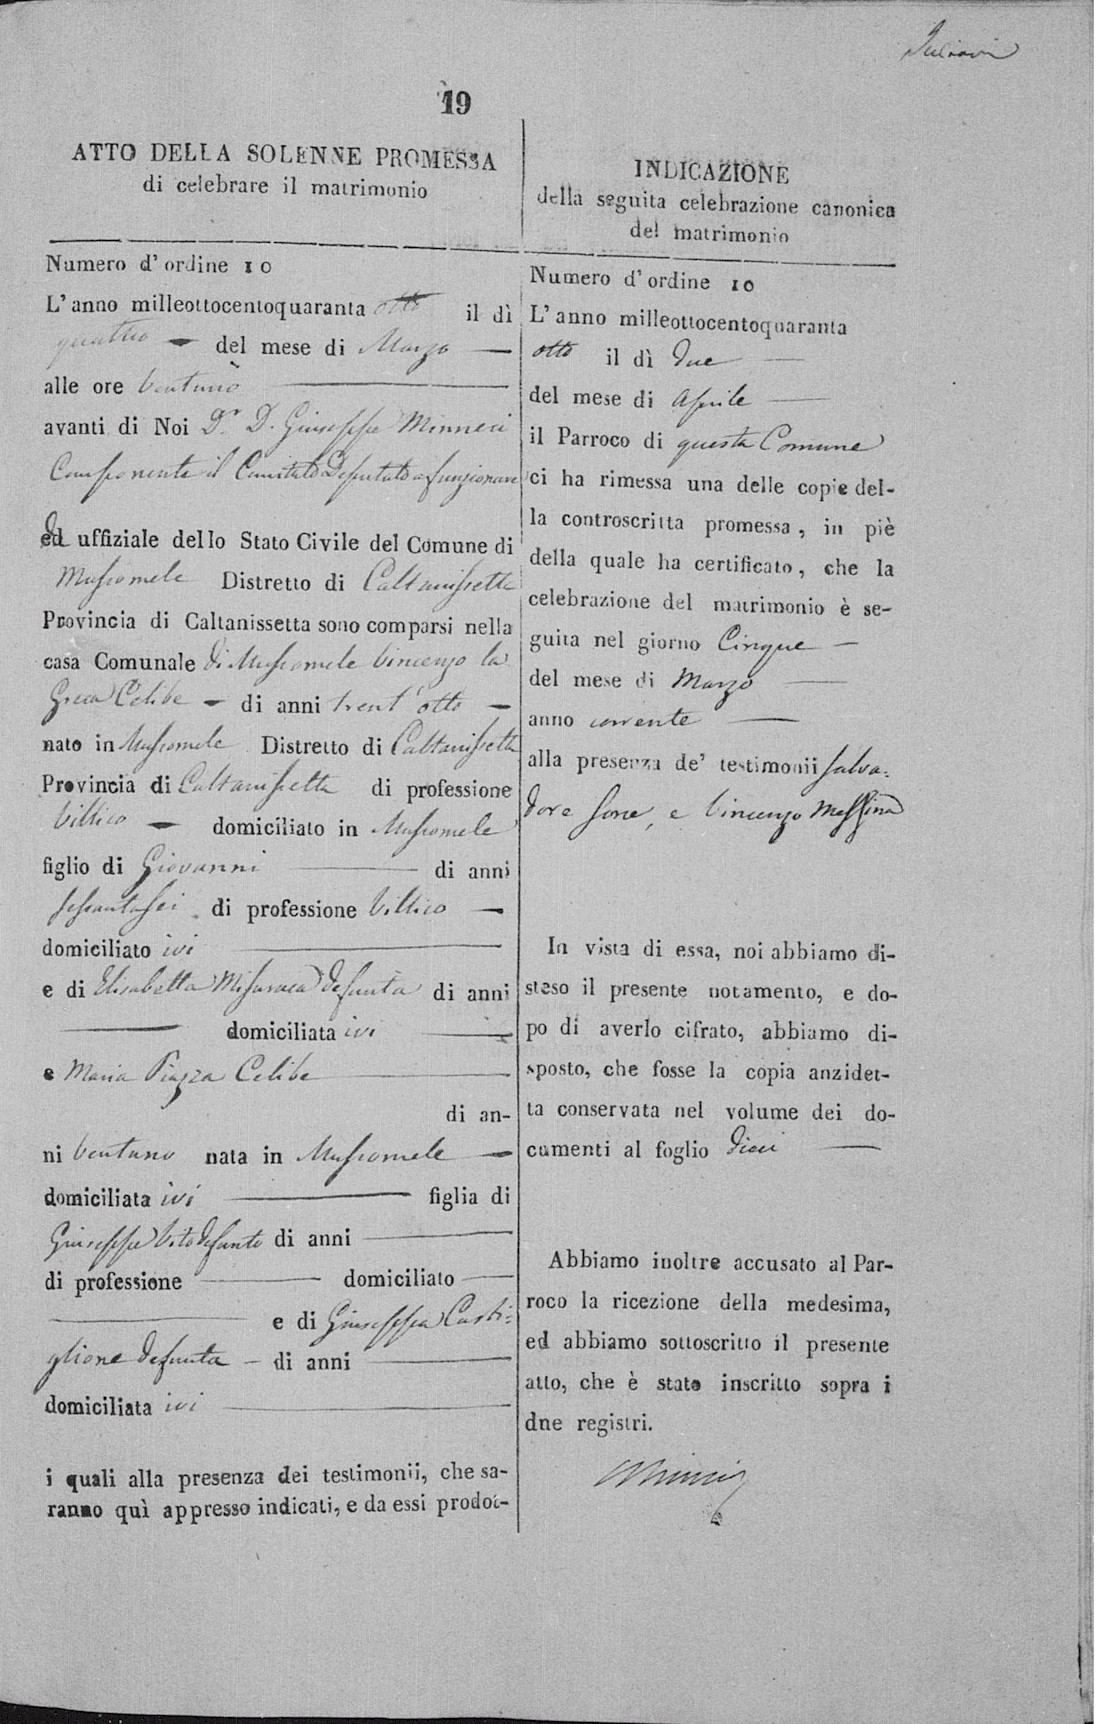 19
ATTO DELLA SOLENNE PROMESSA
di celebrare il matrimonio
Numero d'ordine 10
L'anno milleottocentoquaranta otto il dì
quattro del mese di Marzo
alle ore Ventuno
avanti di Noi Dr. D. Giuseppe Minneci
Componente il Comitato Deputato a funzionare
ed uffiziale dello Stato Civile del Comune di
Mussomele Distretto di Caltanissetta
Provincia di Caltanissetta sono comparsi nella
casa Comunale di Mussomele Vincenzo la
Greca Celibe di anni trent'otto
nato in Mussomele Distretto di Caltanissetta
Provincia di Caltanissetta di professione
Villico domiciliato in Mussomele
figlio di Giovanni di anni
sessantasei di professione Villico
domiciliato ivi
e di Elisabetta Misuraca defunta di anni
domiciliata ivi
e Maria Piazza Celibe
di an-
ni Ventuno nata in Mussomele
domiciliata ivi figlia di
Giuseppe Vito defunto di anni
di professione domiciliato
e di Giuseppa Casti:
glione defunta di anni
domiciliata ivi
i quali alla presenza dei testimonii, che sa-
ranno quì appresso indicati, e da essi prodot-
INDICAZIONE
della seguita celebrazione canonica
del matrimonio
Numero d'ordine 10
L'anno milleottocentoquaranta
otto il dì due
del mese di Aprile
il Parroco di questa Comune
ci ha rimessa una delle copie del-
la controscritta promessa, in piè
della quale ha certificato, che la
celebrazione del matrimonio è se-
guita nel giorno Cinque
del mese di Marzo
anno corrente
alla presenza de' testimonii Salva:
dore Sorce, e Vincenzo Messina
In vista di essa, noi abbiamo di-
steso il presente notamento, e do-
po di averlo cifrato, abbiamo di-
sposto, che fosse la copia anzidet-
ta conservata nel volume dei do-
cumenti al foglio dieci
Abbiamo inoltre accusato al Par-
roco la ricezione della medesima,
ed abbiamo sottoscritto il presente
atto, che è stato inscritto sopra i
dne registri.
Minneci